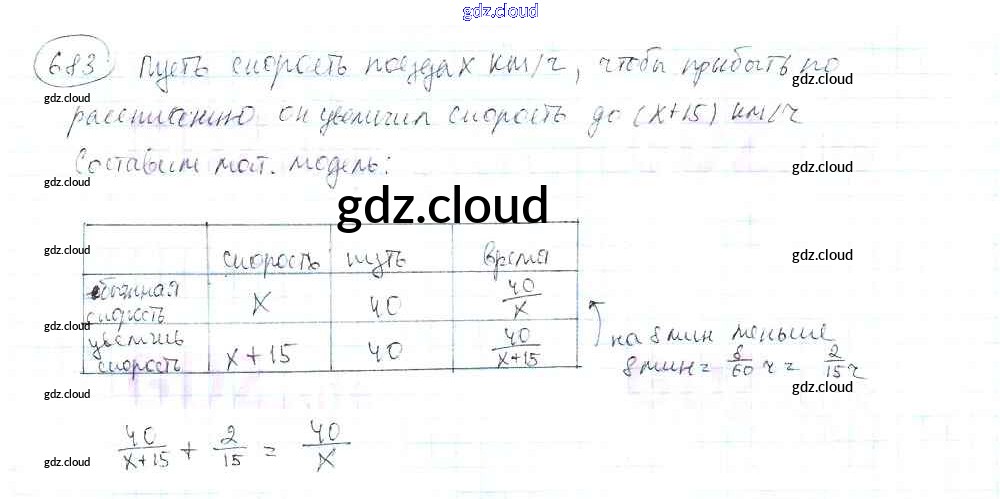 gdz.cloud
683 Пусть скорость поезда x км/ч, чтобы прибыть по
рассписанию он увеличил скорость до (x+15) км/ч
gdz.cloud gdz.cloud
Составим мат. модель:
gdz.cloud gdz.cloud
gdz.cloud
скорость путь время
gdz.cloud gdz.cloud
обычная скорость x 40 40/x
gdz.cloud
увелич скорость x+15 40 40/x+15
на 8 мин меньше
8 мин = 8/60 ч = 2/15 ч
gdz.cloud gdz.cloud
40/x+15 + 2/15 = 40/x
gdz.cloud gdz.cloud